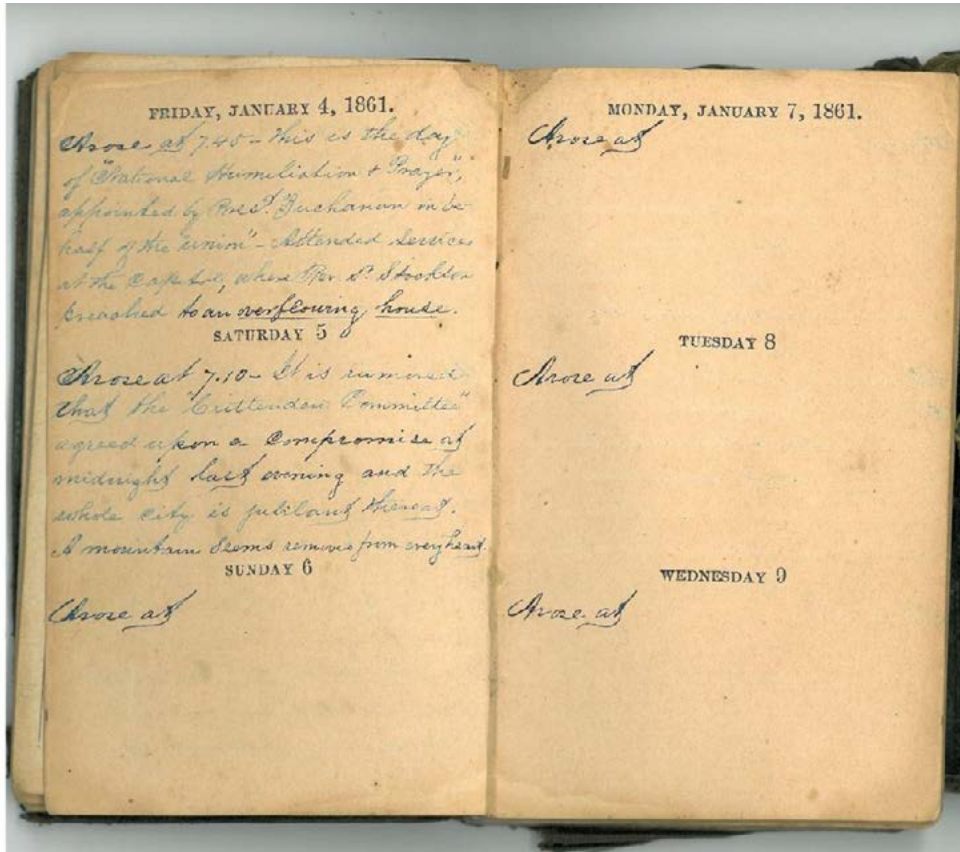 FRIDAY, JANUARY 4, 1861.
Arose at 7.45 - this is the day
of "National Humiliation & Prayer",
appointed by Pres't. Buchanan in be-
half of the "union" - Attended Services
at the Capitol, where Rev. Dr. Stockton
preached to an overflowing house.
SATURDAY 5
Arose at 7.10 - It is rumored
that the "Crittenden Committee"
agreed upon a Compromise at
midnight last evening and the
whole city is jubilant thereat.
A mountain seems removed from every heart.
SUNDAY 6
Arose at
MONDAY, JANUARY 7, 1861.
Arose at
TUESDAY 8
Arose at
WEDNESDAY 9
Arose at